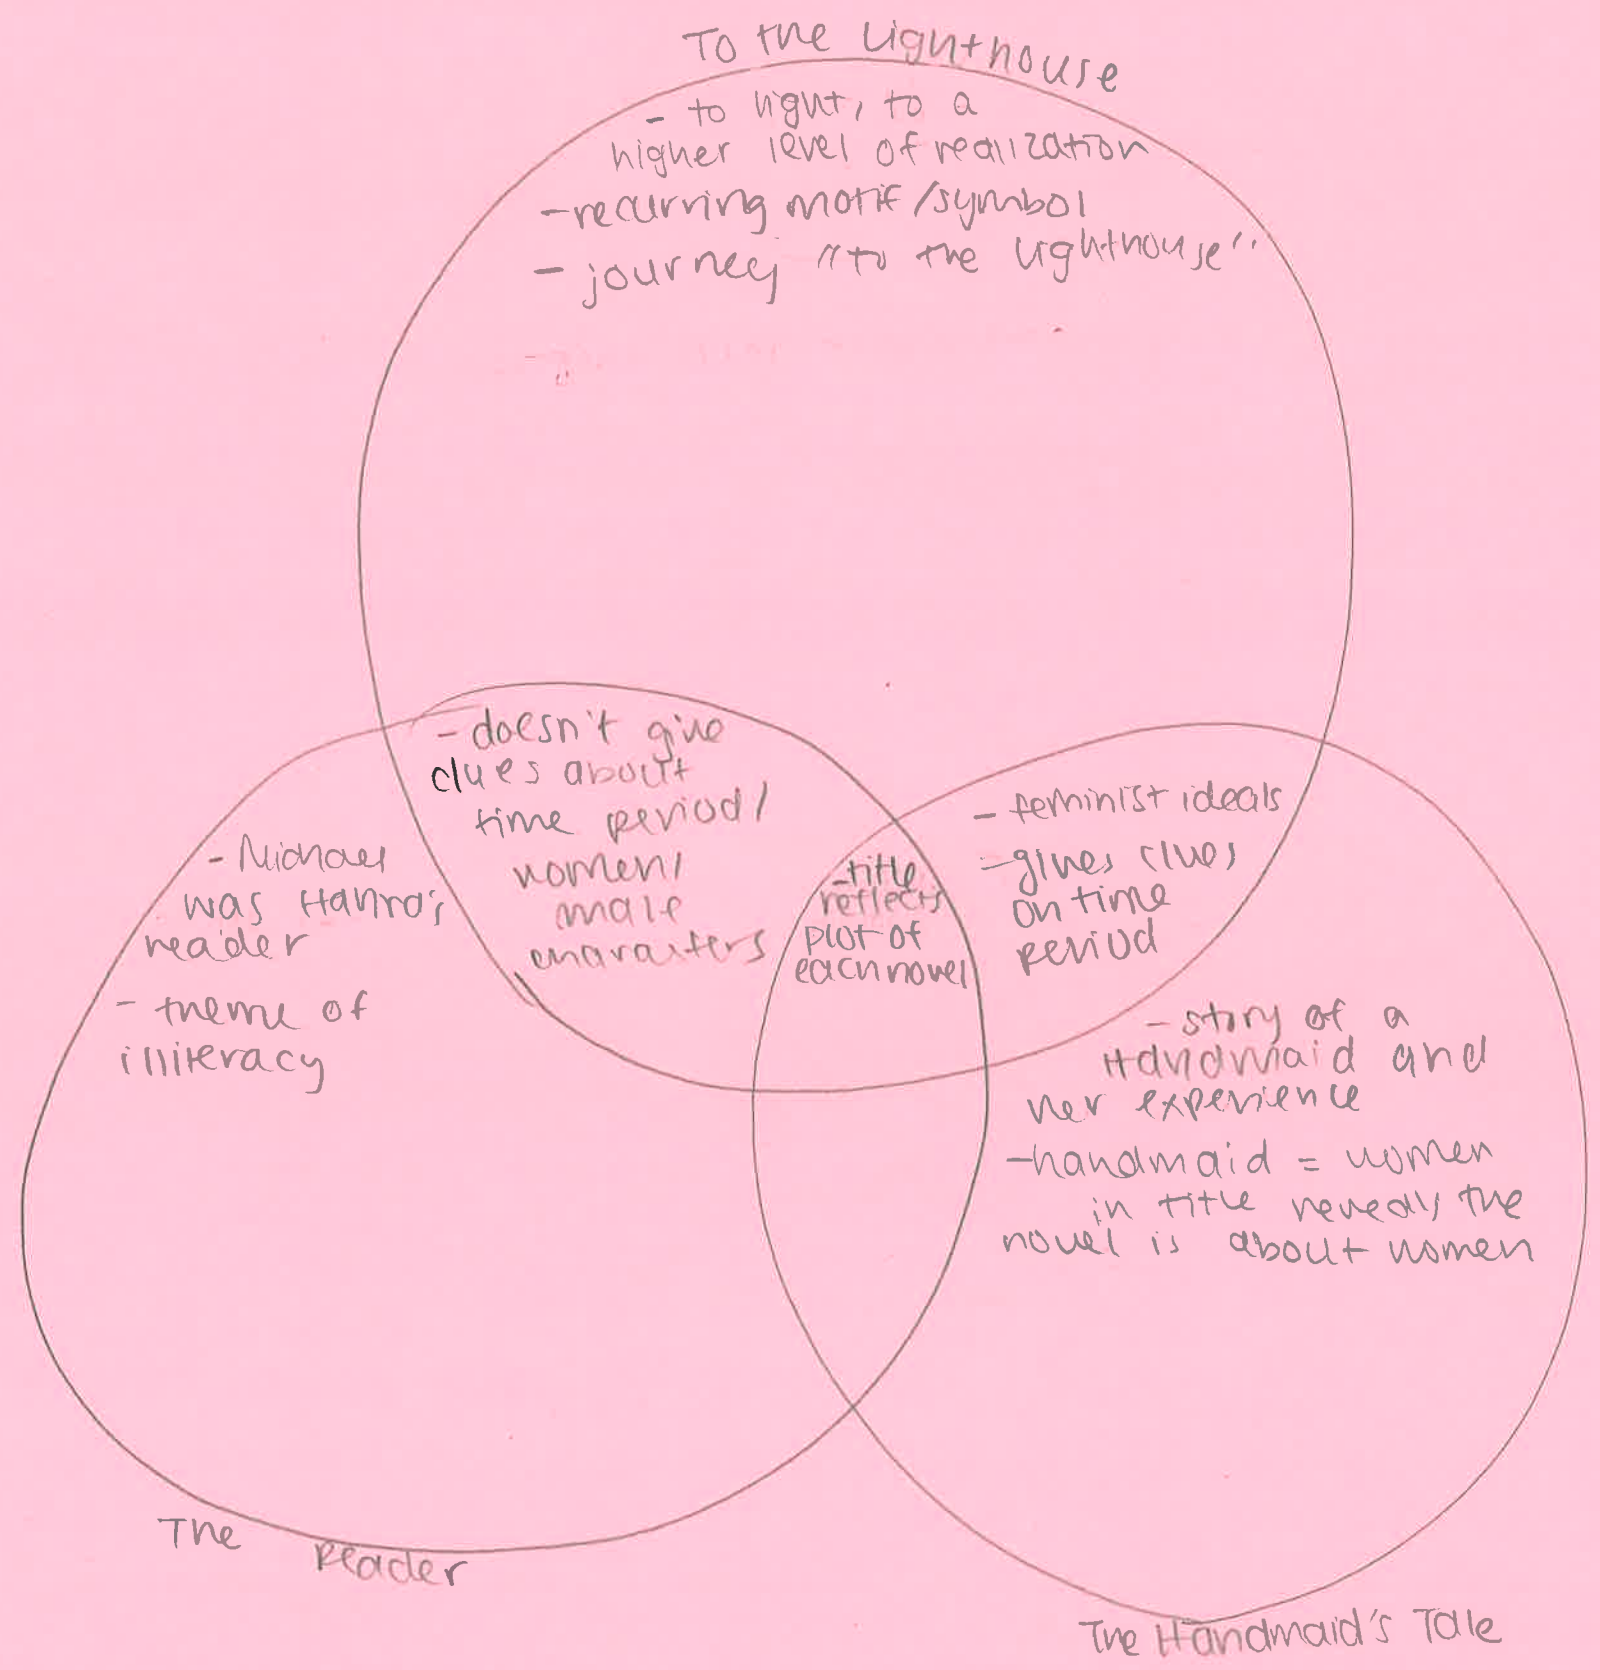 To the Lighthouse
- to light, to a
higher level of realization
- recurring motif/symbol
- journey "to the Lighthouse"
- doesn't give
clues about
time period/
women/
male
characters
- feminist ideals
- gives clues
on time
period
- title
reflects
plot of
each novel
- Michael
was Hanna's
reader
- theme of
illiteracy
- story of a
Handmaid and
her experience
- handmaid = women
in title reveals the
novel is about women
The Reader
The Handmaid's Tale